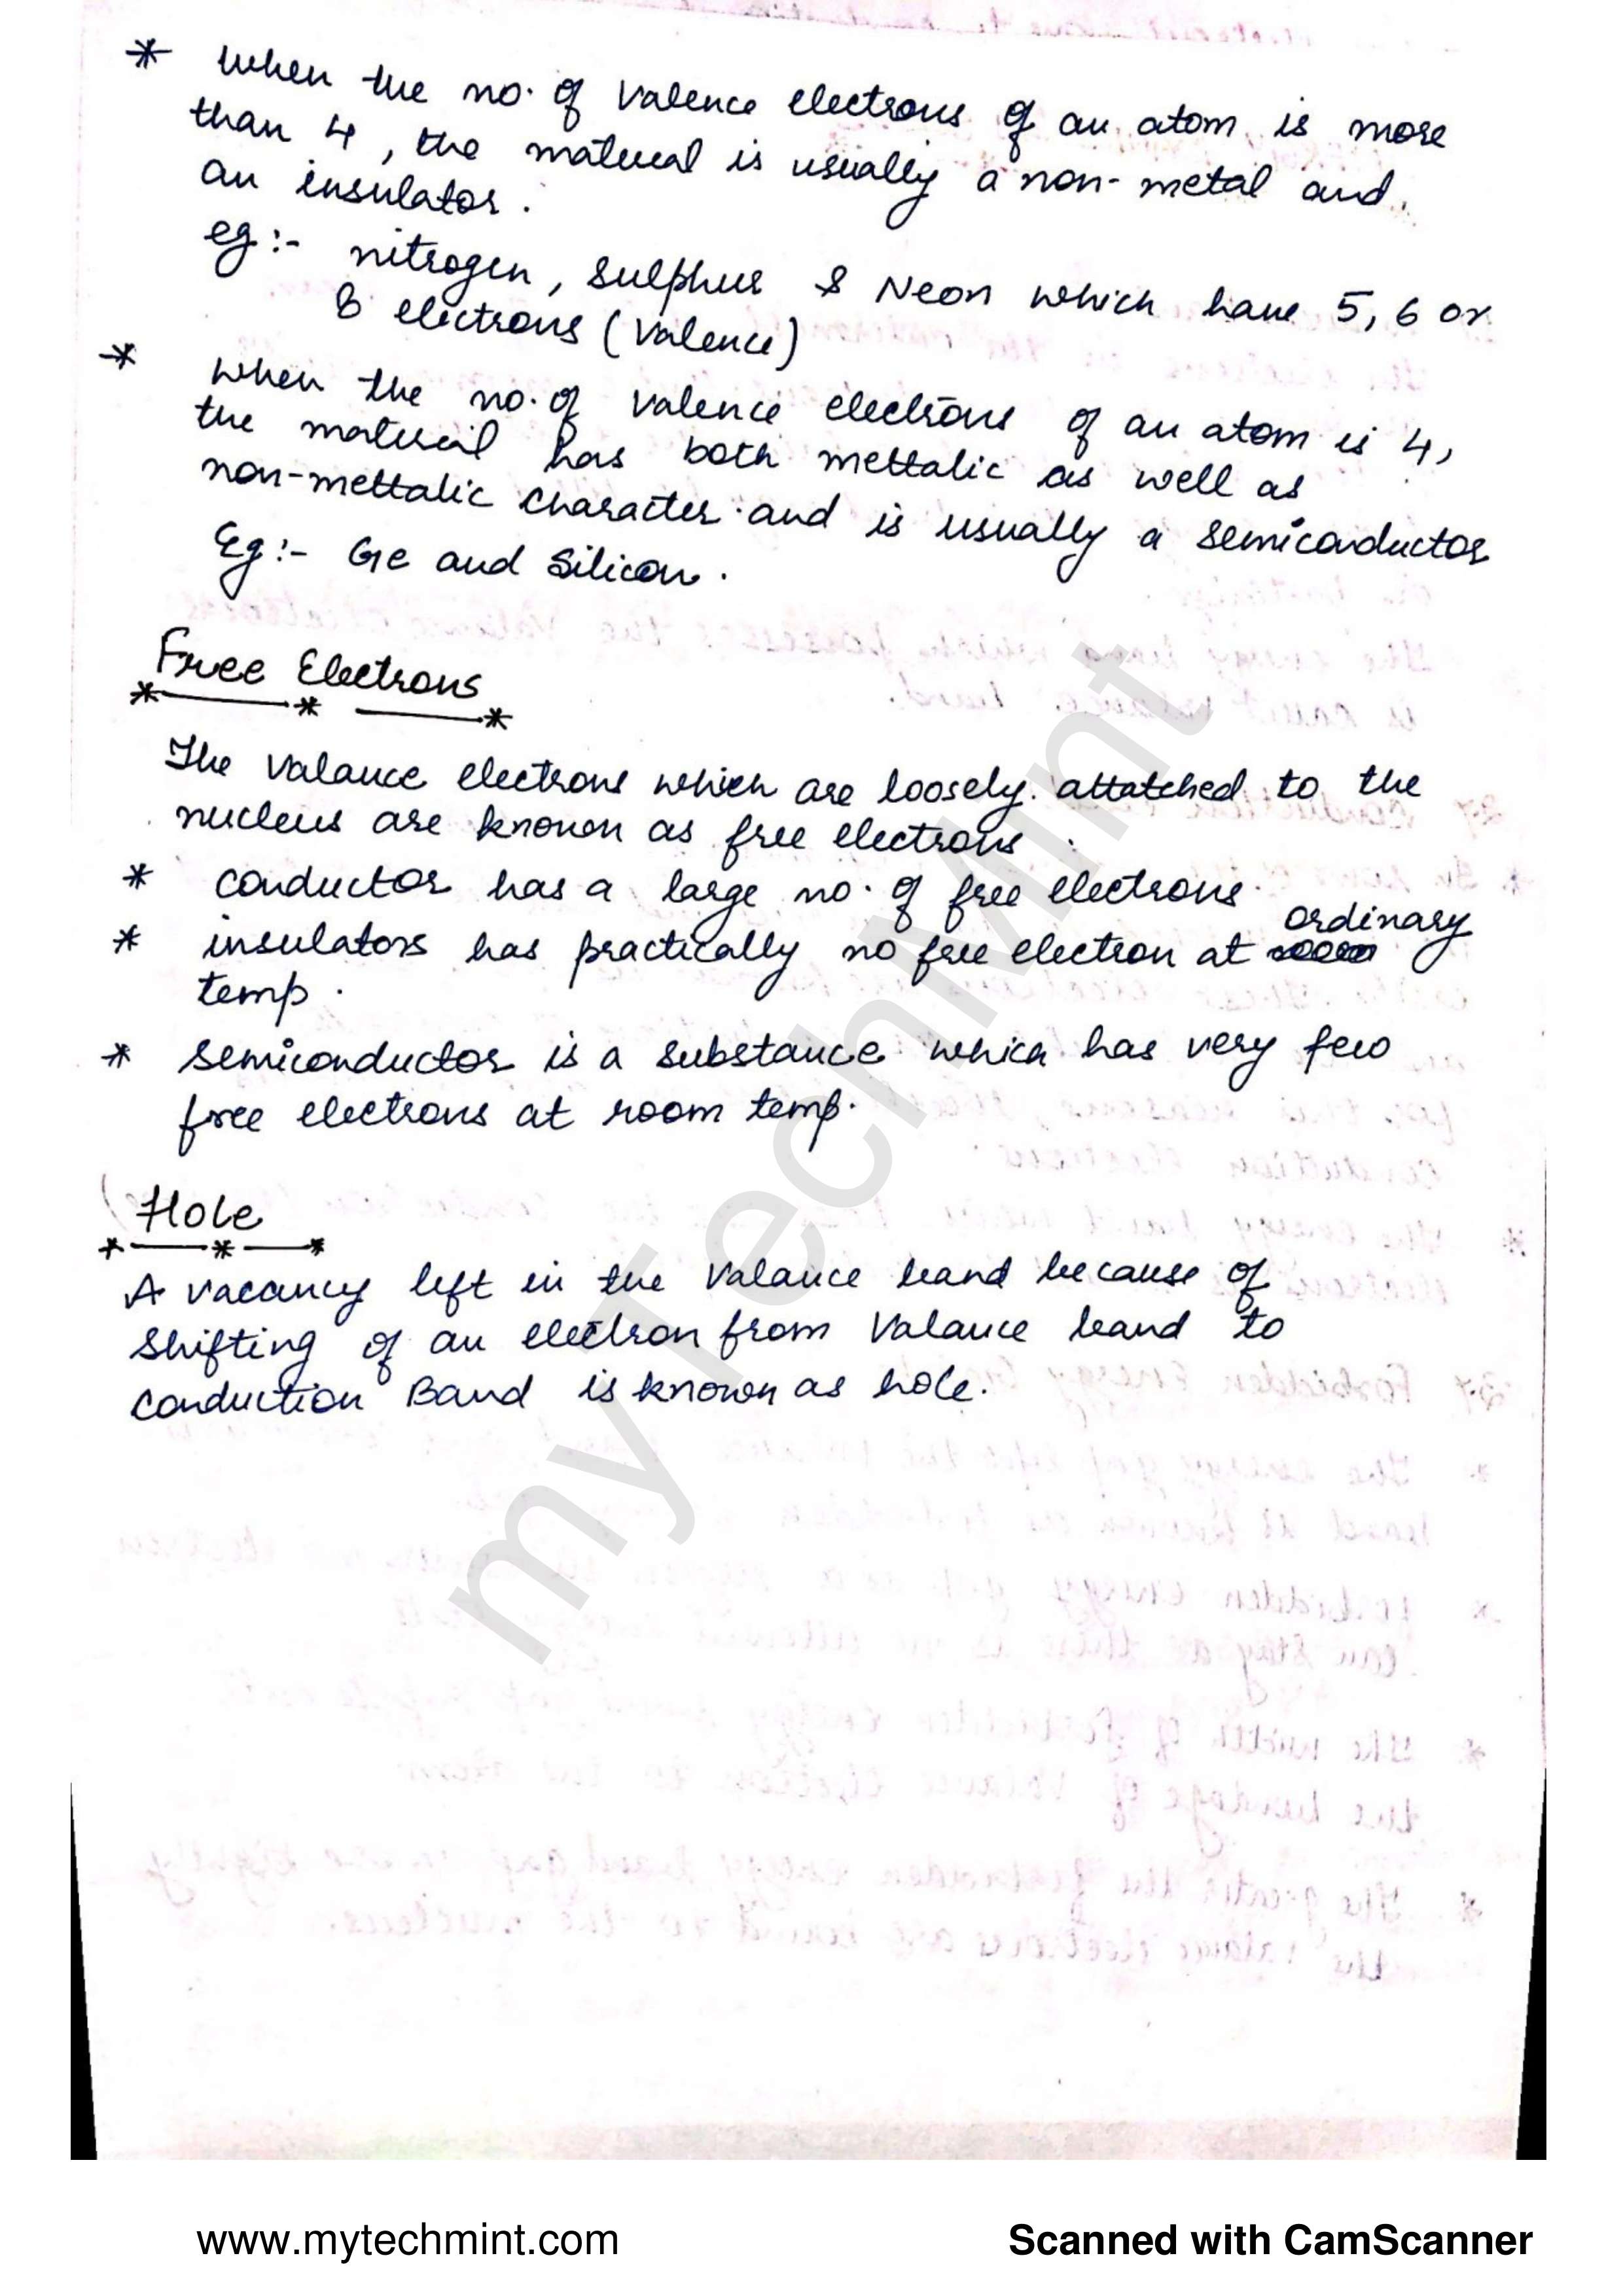 * When the no. of Valence electrons of an atom is more
than 4, the material is usually a non-metal and
an insulator.
eg:- nitrogen, Sulphur & Neon which have 5, 6 or
8 electrons (Valence)
* When the no. of Valence electrons of an atom is 4,
the material has both mettalic as well as
non-mettalic character and is usually a semiconductor
Eg:- Ge and Silicon.
Free Electrons
The Valance electrons which are loosely attatched to the
nucleus are known as free electrons.
* conductor has a large no. of free electrons.
* insulators has practically no free electron at ordinary
temp.
* semiconductor is a substance which has very few
free electrons at room temp.
Hole
A vacancy left in the Valance band because of
Shifting of an electron from Valance band to
Conduction Band is known as hole.
my Tech Mint
www.mytechmint.com
Scanned with CamScanner